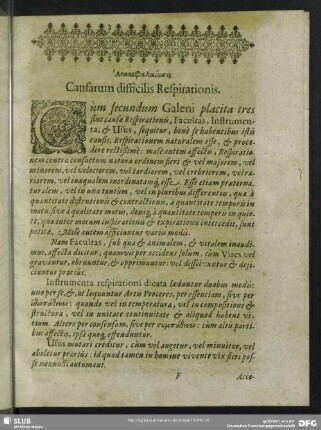 Ἀνακεφαλαίωσις
Causarum difficilis Respirationis.
CUm secundum Galeni placita tres
sint causæ Respirationis, Facultas, Instrumen-
ta, & Usus, sequitur, benè se habentibus istis
causis, Respirationem naturalem esse, & proce-
dere rectissimè: malè autem affectis, Respiratio-
nem contra consuetum naturæ ordinem fieri & vel majorem, vel
minorem, vel velociorem, vel tardiorem, vel crebriorem, vel ra-
riorem, vel inæqualem inordinatamq́, esse. Esse etiam præterna-
turalem, vel in una tantùm, vel in pluribus differentiis, quæ à
quantitate distentionis & contractionis, à quantitate temporis in
motu, sive à qualitate motus, deniq, à quantitate temporis in quie-
te, quæ inter unam inspirationis & expirationis intercedit, sunt
petitæ. Malè autem afficiuntur variis modis.
Nam Facultas, sub qua & animalem, & vitalem inaudi-
mus, affecta dicitur, quamvis per accidens solum, cùm Vires vel
gravantur, obruuntur, & opprimuntur: vel dissolvuntur & deji-
ciuntur prorsus.
Instrumenta respirationi dicata læduntur duobus modis:
uno per se, & ut loquuntur Artis Proceres, pro essentiam, sive per
ἰδιοπάθειαν: quando vel in temperatura, vel in compositione &
structura, vel in unitate continuitate & aliquod habent vi-
tium. Altero per consensum, sive per συμπάθειαν: cùm aliis parti-
bus affectis, ipsa quoq, offenduntur.
Usus mutari creditur, cùm vel augetur, vel minuitur, vel
aboletur prorsus: id quod tamen in homine vivente vix fieri pos-
se nonnulli autumant.
F
Acce-
SLUB
Wir führen Wissen.
gefördert von der
Deutschen Forschungsgemeinschaft
DFG